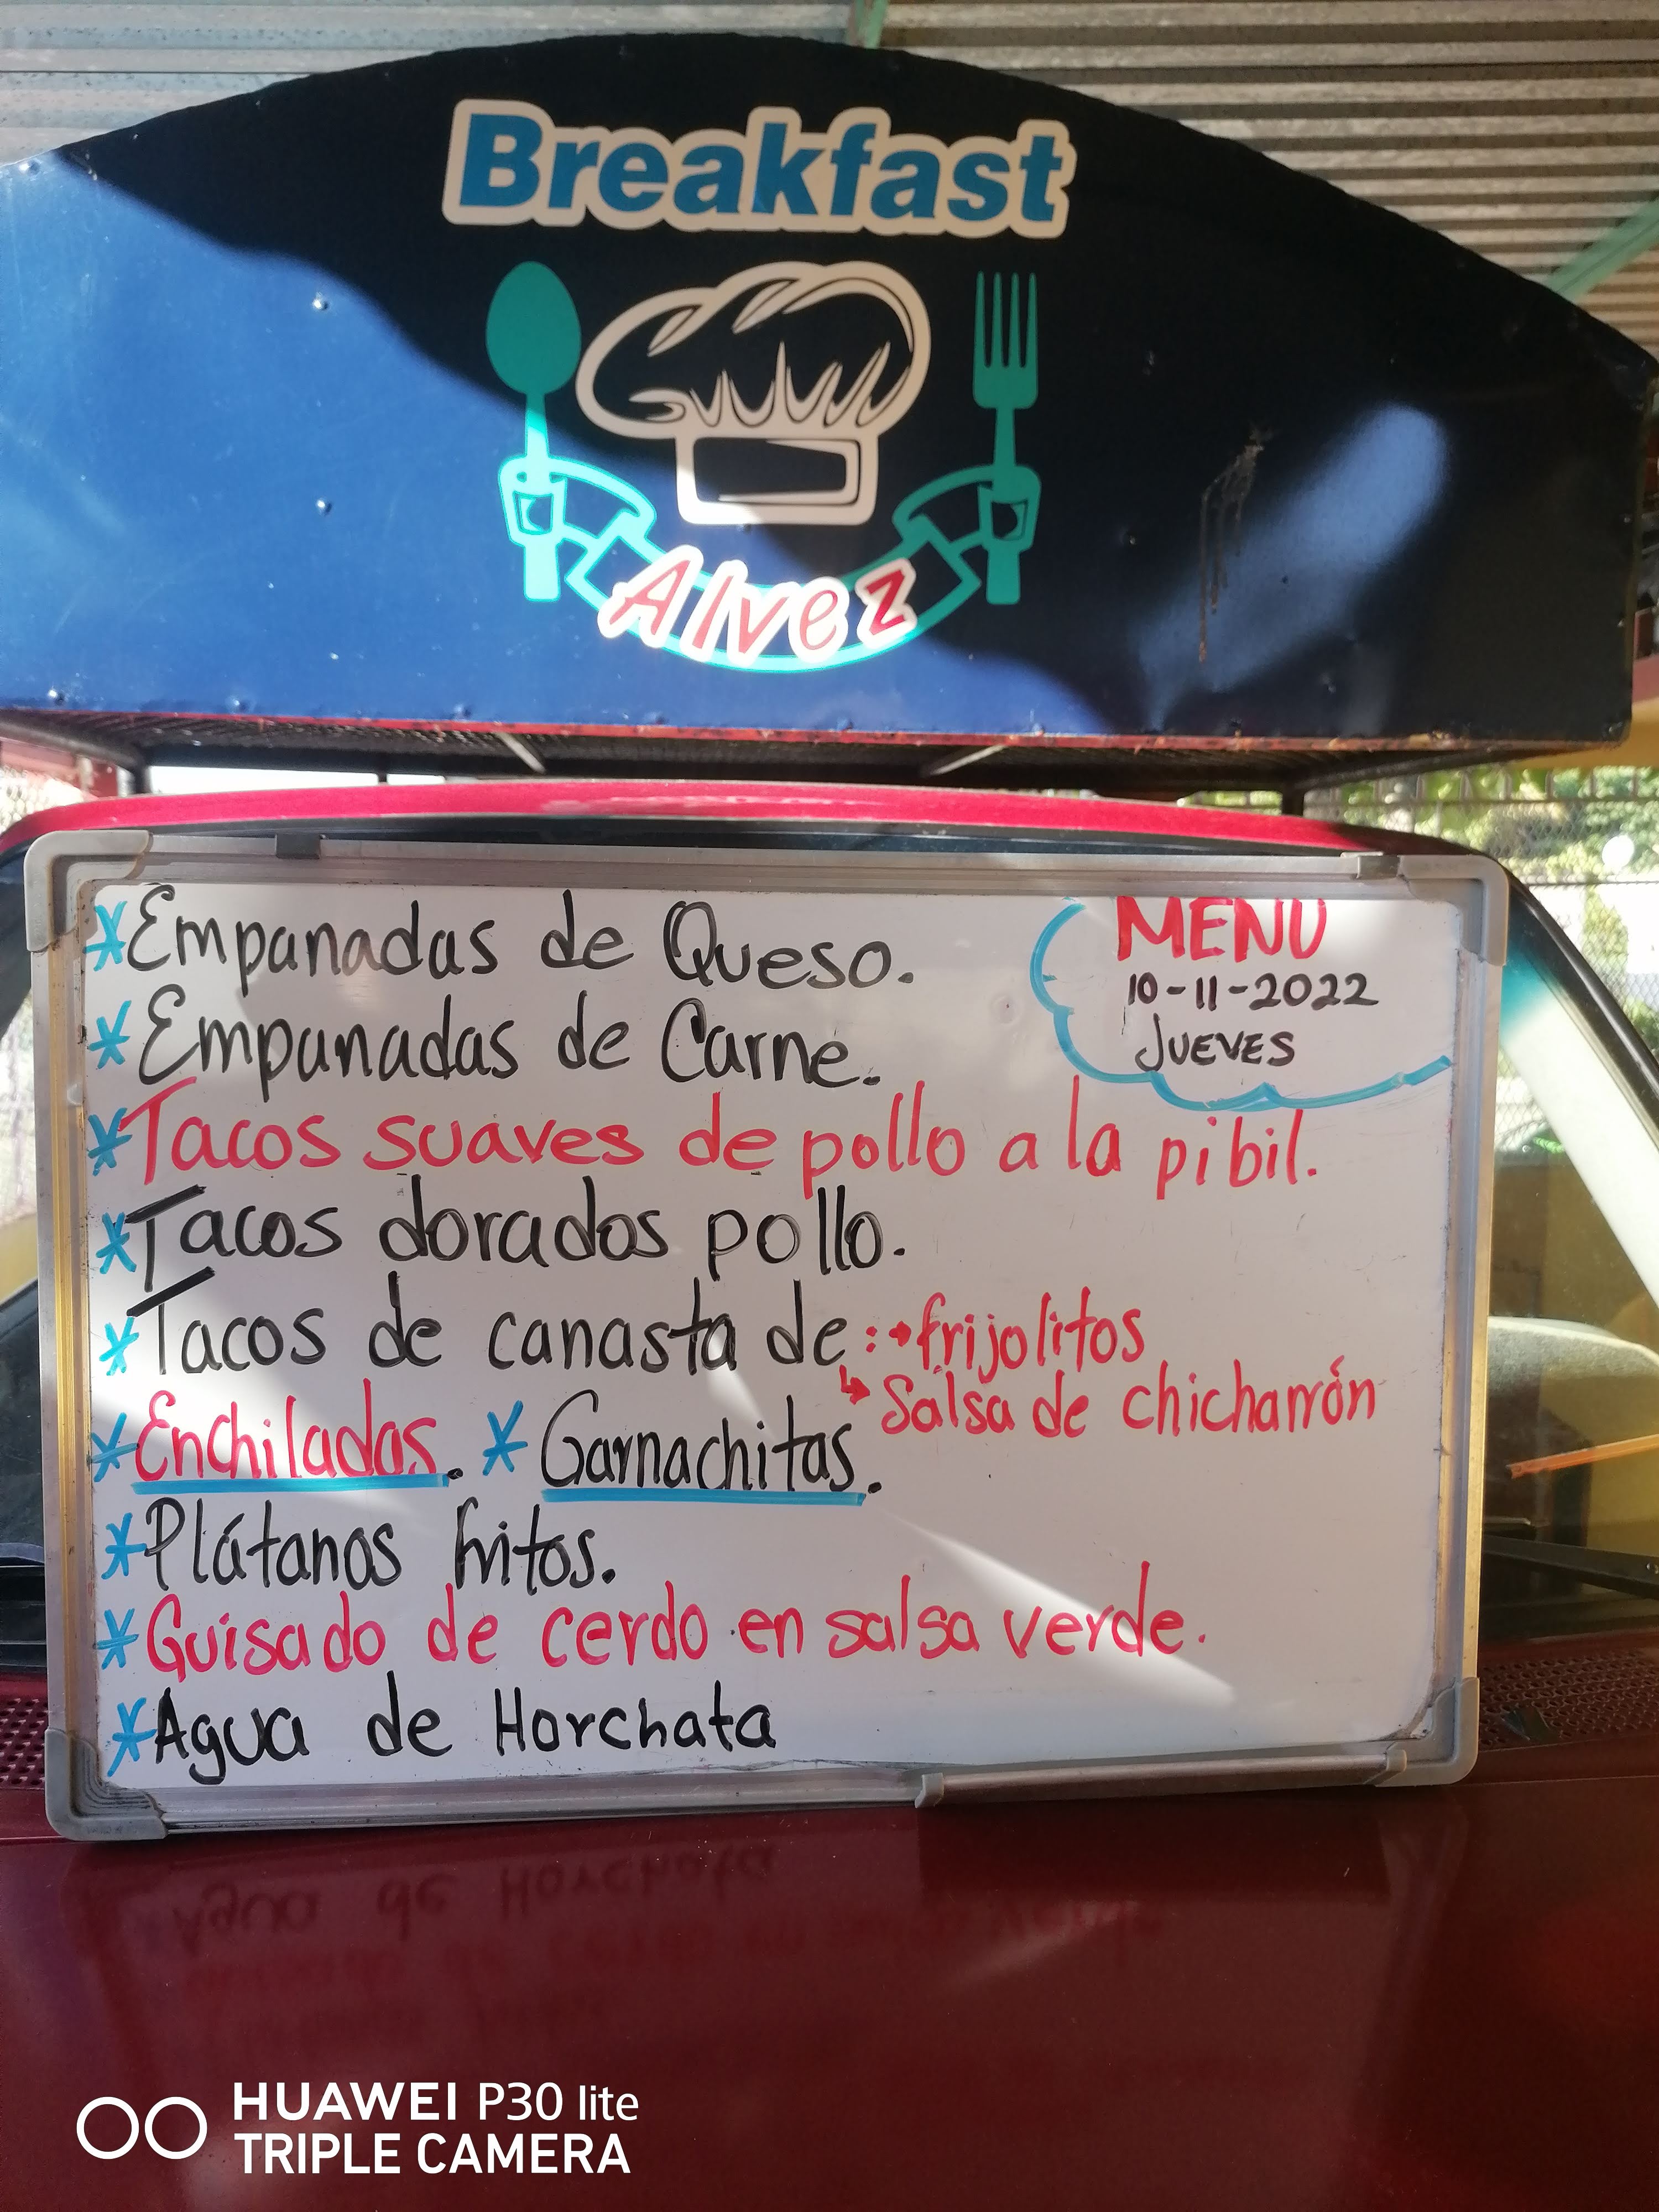 Breakfast
Alvez
MENU
10-11-2022
JUEVES
*Empanadas de Queso.
*Empanadas de Carne.
*Tacos suaves de pollo a la pibil.
*Tacos dorados pollo.
*Tacos de canasta de:→frijolitos
↳Salsa de chicharrón
*Enchiladas. *Garnachitas.
*Plátanos fritos.
*Guisado de cerdo en salsa verde.
*Agua de Horchata
HUAWEI P30 lite
TRIPLE CAMERA